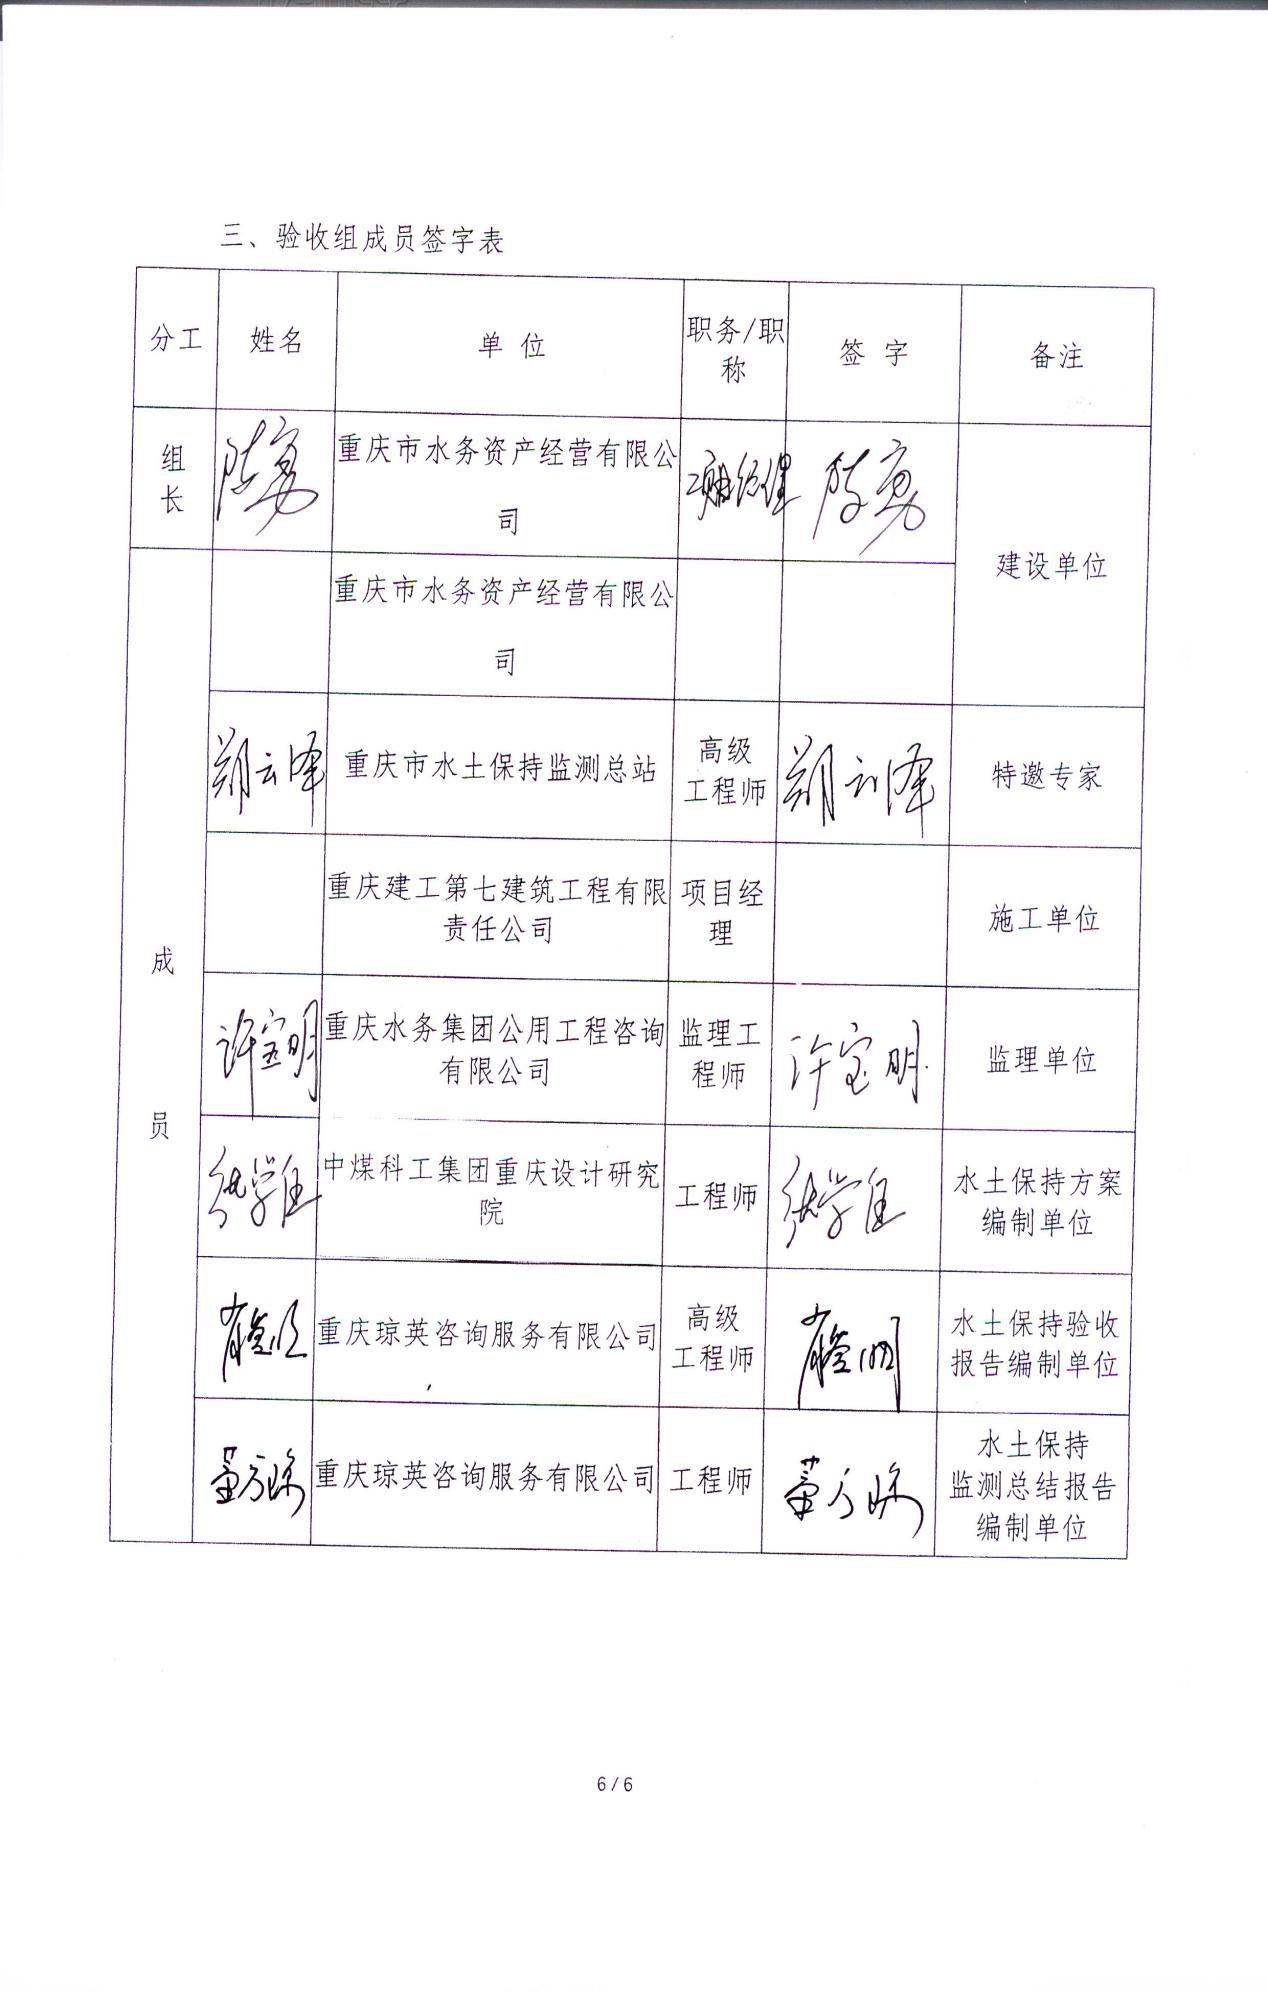 三、验收组成员签字表
分工 姓名 单 位 职务/职称 签 字 备注
组长 陈勇 重庆市水务资产经营有限公司 项目经理 陈勇 建设单位
成员
重庆市水务资产经营有限公司
郑云泽 重庆市水土保持监测总站 高级工程师 郑云泽 特邀专家
重庆建工第七建筑工程有限责任公司 项目经理 施工单位
许宝明 重庆水务集团公用工程咨询有限公司 监理工程师 许宝明 监理单位
中煤科工集团重庆设计研究院 工程师 水土保持方案编制单位
重庆琼英咨询服务有限公司 高级工程师 水土保持验收报告编制单位
重庆琼英咨询服务有限公司 工程师 水土保持监测总结报告编制单位
6/6